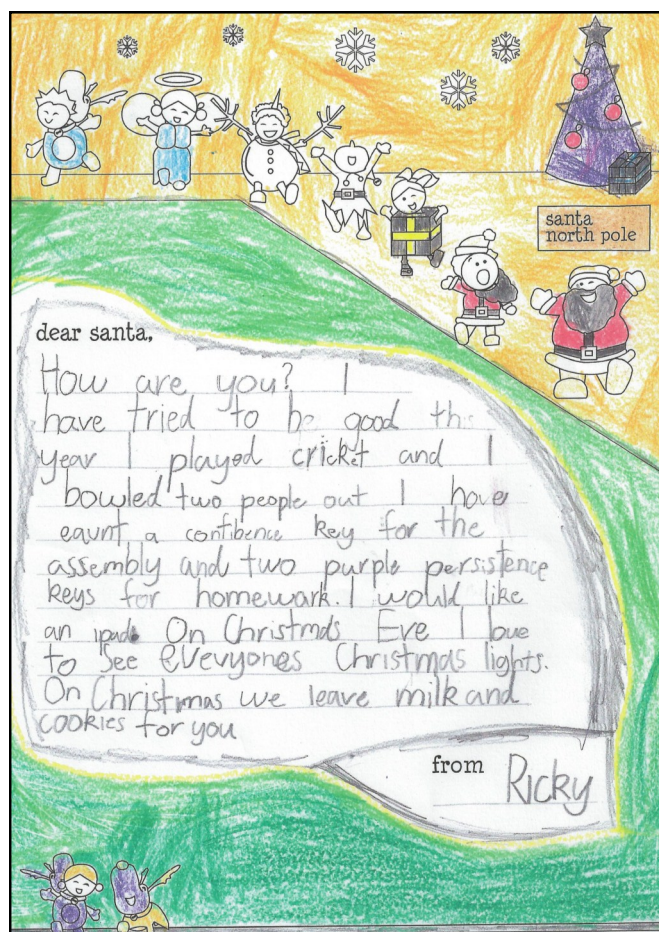 santa
north pole
dear santa,
How are you? I
have tried to be good this
year I played cricket and I
bowled two people out I have
eaunt a confibence key for the
assembly and two purple persistence
keys for homewark. I would like
an ipad. On Christmas Eve I love
to See evevyones Christmas lights.
On Christmas we leave milk and
cookies for you
from Ricky